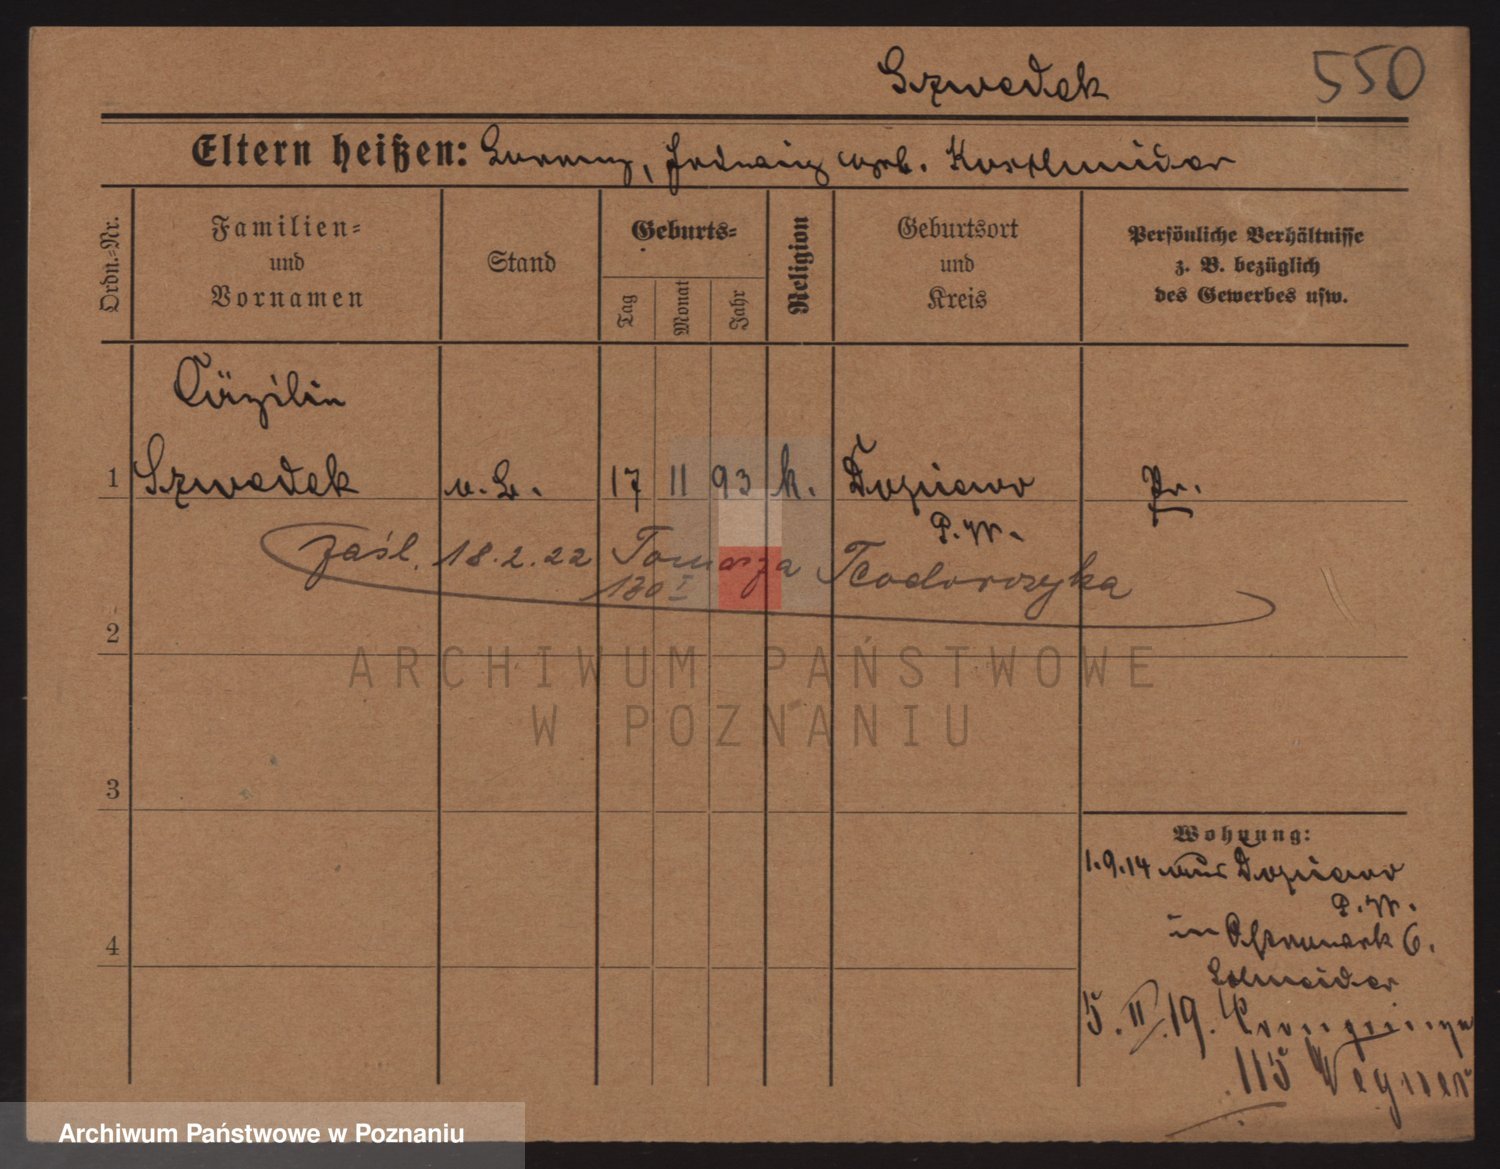 Szwedek
550
Eltern heißen: Lorenz, geb.
Ordn.-Nr.
Familien-
und
Vornamen
Stand
Geburts-
Tag
Monat
Jahr
Religion
Geburtsort
und
Kreis
Persönliche Verhältnisse
z. B. bezüglich
des Gewerbes usw.
Cäzilie
1 Szwedek 17 II 93 k. Dopiewo Pr.
P. W.
zaśl. 18.2.22 Tomasza Teodorczyka
130 I
2
ARCHIWUM PAŃSTWOWE
W POZNANIU
3
Wohnung:
1.9.14 aus Dopiewo
P. W.
4
in 6.
Schneider
5. II. 19.
115 Wegner
Archiwum Państwowe w Poznaniu